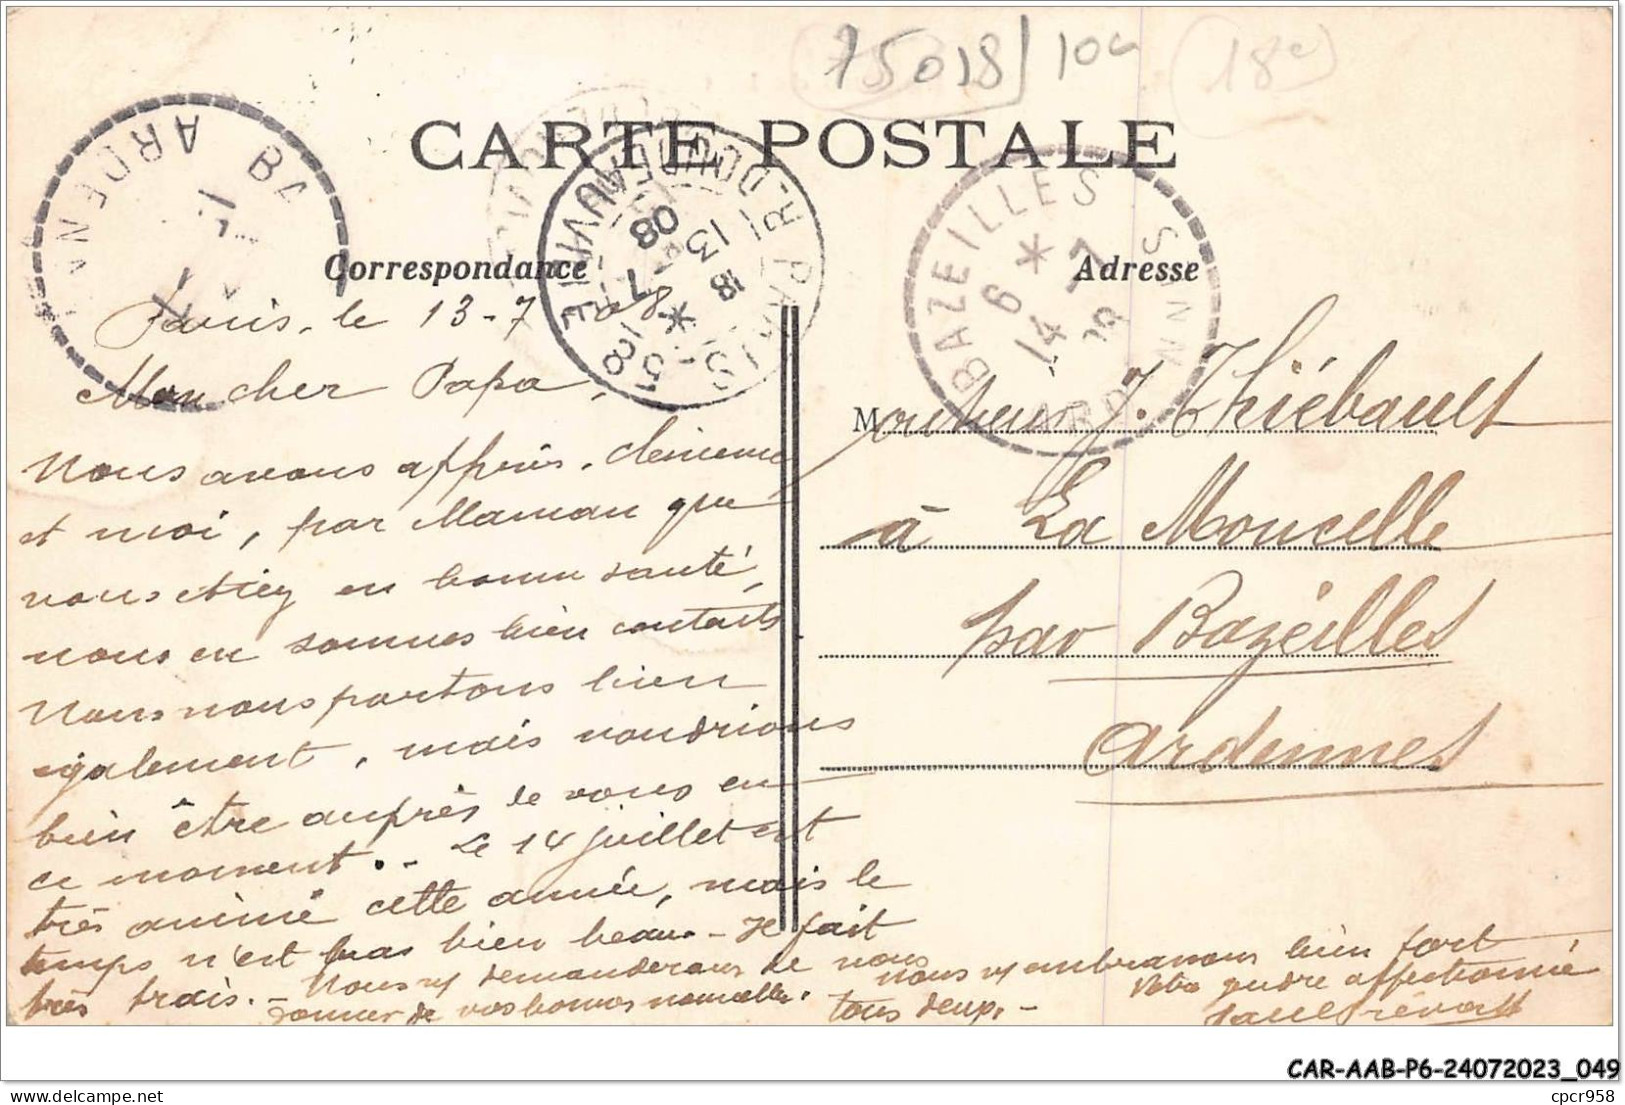 75018 10c 18e
CARTE POSTALE
Correspondance
Adresse
PARIS 58 R. DOUDEAUVILLE
18 * 13 - 7 08
BAZEILLES ARDENNES
6 * 14 - 7 08
ARDENNES BA
Paris, le 13-7-08
Mon cher Papa,
Nous avons appris, Clémence
et moi, par Maman que
vous étiez en bonne santé,
nous en sommes bien contents
Nous nous portons bien
également, mais voudrions
bien être auprès de vous en
ce moment. - Le 14 juillet est
très animé cette année, mais le
temps n'est pas bien beau - Il fait
très frais. - Nous vs demanderons de nous
donner de vos bonnes nouvelles.
nous vs embrassons bien fort
tous deux, -
Votre gendre affectionné
Paul Prévost
Monsieur J. Thiébault
à La Moncelle
par Bazeilles
Ardennes
CAR-AAB-P6-24072023_049
delcampe.net
cpcr958